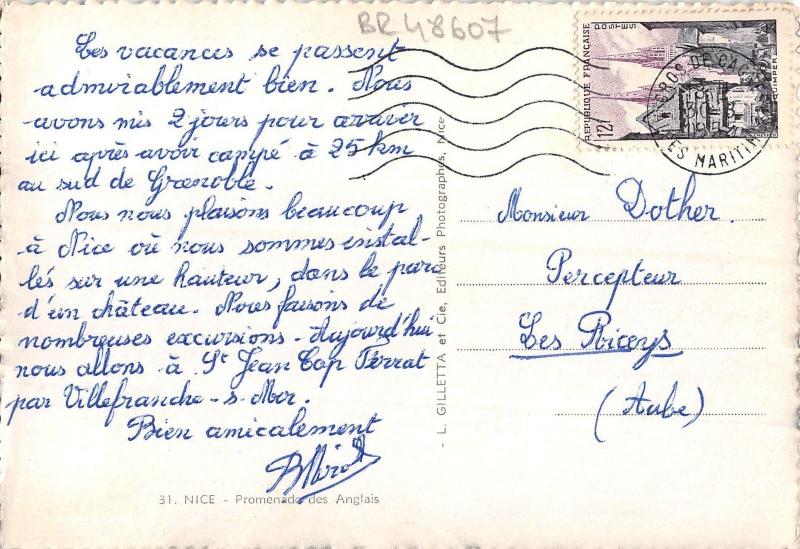 BR48607
Les vacances se passent
admirablement bien. Nous
avons mis 2 jours pour arriver
ici après avoir campé à 25 km
au sud de Grenoble.
Nous nous plaisons beaucoup
à Nice où nous sommes instal-
lés sur une hauteur, dans le parc
d'un château. Nous faisons de
nombreuses excursions. Aujourd'hui
nous allons à St Jean Cap Ferrat
par Villefranche-s-Mer.
Bien amicalement
31. NICE - Promenade des Anglais
- L. GILLETTA et Cie, Editeurs Photographes, Nice -
REPUBLIQUE FRANÇAISE
POSTES
12F
QUIMPER
CROS DE CAG
ES MARITIM
Monsieur Dother.
Percepteur
Les Riceys
(Aube)